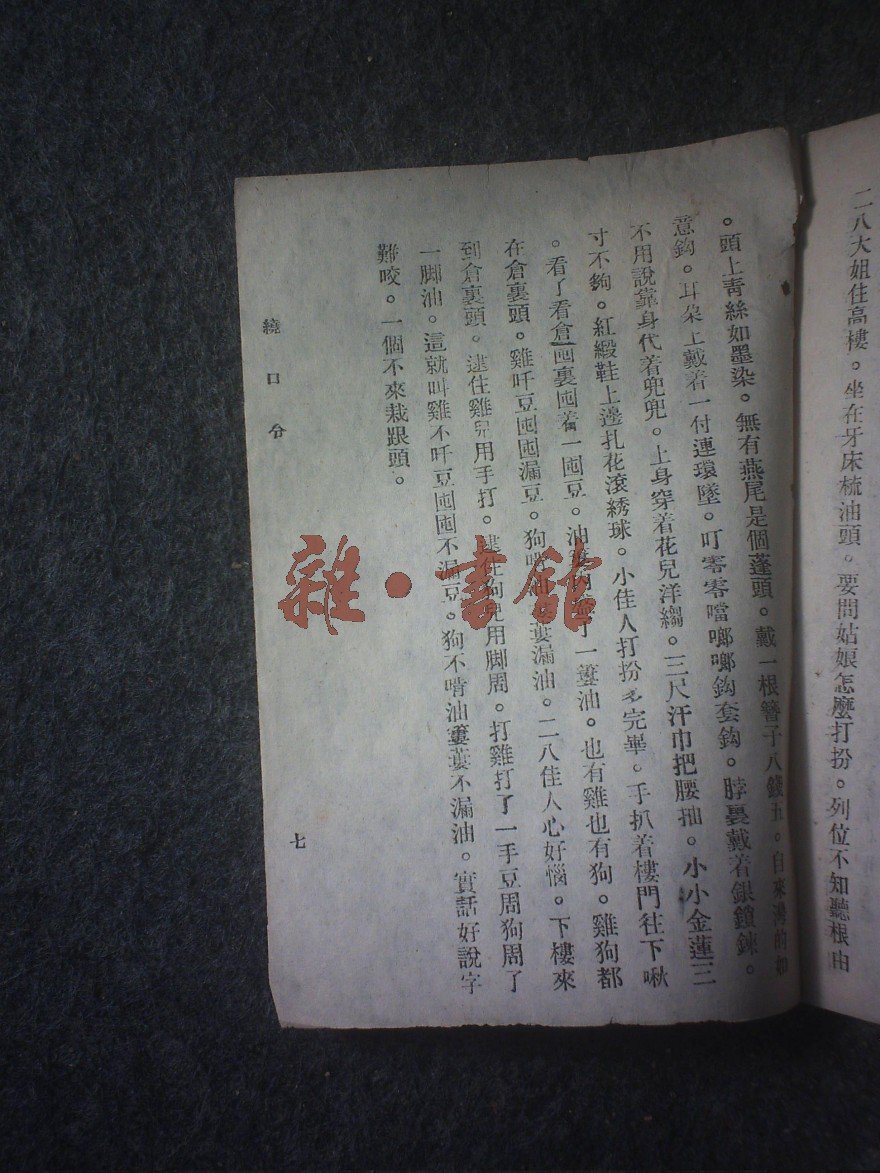 二八大姐住高樓。坐在牙床梳油頭。要問姑娘怎麼打扮。列位不知聽根由
。頭上青絲如墨染。無有燕尾是個蓬頭。戴一根簪子八錢五。自來灣的如
意鈎。耳朶上戴着一付連環墜。叮零零噹啷啷鈎套鈎。脖裏戴着銀鎖鍊。
不用說靠身代着兜兜。上身穿着花兒洋縐。三尺汗巾把腰抽。小小金蓮三
寸不夠。紅緞鞋上邊扎花滾綉球。小佳人打扮多完畢。手扒着樓門往下啾
。看了看倉囤裏囤着一囤豆。油簍內了一簍油。也有雞也有狗。雞狗都
在倉裏頭。雞吀豆囤囤漏豆。狗啃油簍漏油。二八佳人心好惱。下樓來
到倉裏頭。逮住雞兒用手打。逮住狗兒用脚周。打雞打了一手豆周狗周了
一脚油。這就叫雞不吀豆囤囤不漏豆。狗不啃油簍簍不漏油。實話好說字
難咬。一個不來栽跟頭。
繞口令
七
雜·書館